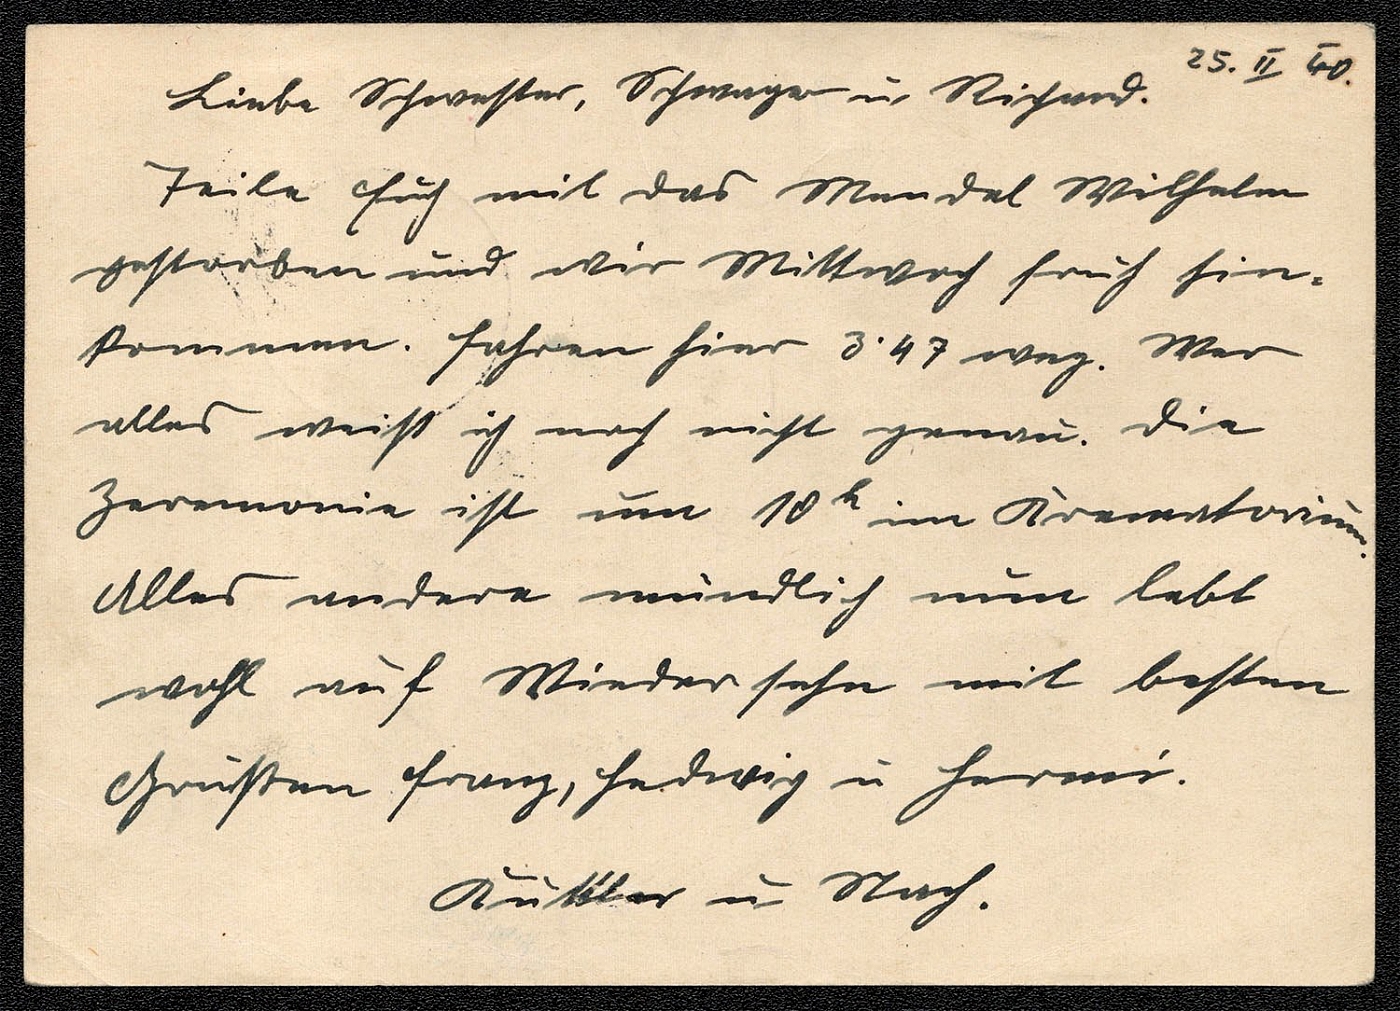 25. II 40.
Liebe Schwester, Schwager u. Richard.
Teile Euch mit das Mendel Wilhelm
gestorben und wir Mittwoch früh hin-
kommen. Fahren hier 3·47 weg. Wer
alles weiß ich noch nicht genau. Die
Zeremonie ist um 10h im Krematorium.
Alles andere mündlich nun lebt
wohl auf Wiedersehn mit besten
Grüßen Franz, Hedwig u Hermi.
u Nach.